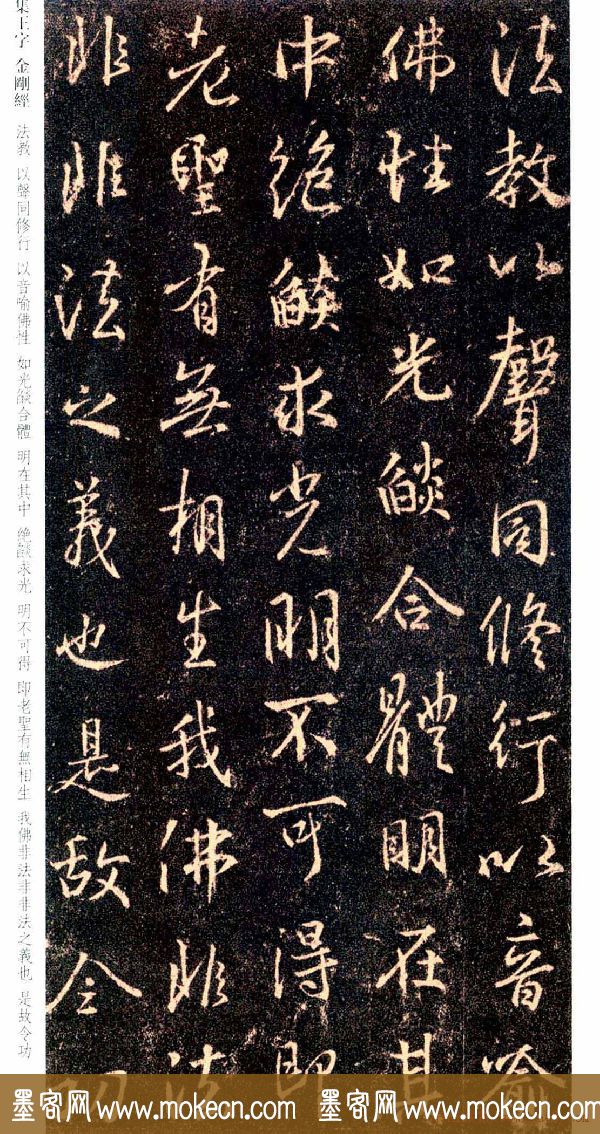 法教以聲同修行以音喻
佛性如光燄合體明在其
中絶燄求光明不可得即
老聖有無相生我佛非法
非非法之義也是故令功
集王字 金剛經 法教 以聲同修行 以音喻佛性 如光燄合體 明在其中 絶燄求光 明不可得 即老聖有無相生 我佛非法非非法之義也 是故令功
墨客网 www.mokecn.com 墨客网 www.mokecn.com